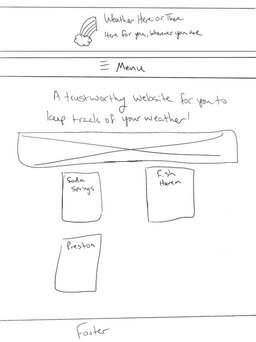 Weather Here or There
Here for you, wherever you are
Menu
A trustworthy website for you to
keep track of your weather!
Soda
Springs
Fish
Haven
Preston
Footer